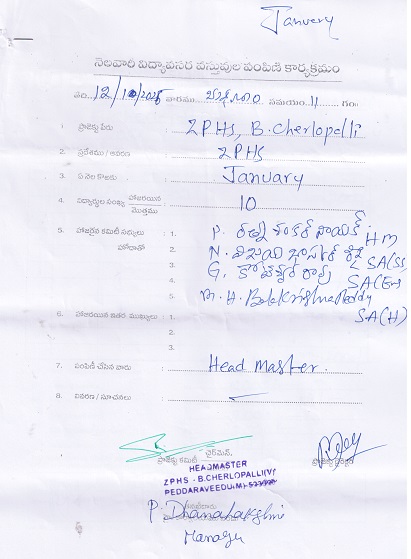 January
నెలవారీ విద్యావసర వస్తువుల పంపిణీ కార్యక్రమం
తేది: 12/10/2015 వారము బుధవారం సమయం 11 గం.
1. ప్రాజెక్టు పేరు : ZPHS, B.Cherlopalli
2. ప్రదేశము / ఆవరణ : ZPHS
3. ఏ నెల కొఱకు : January
4. విద్యార్థుల సంఖ్య హాజరయిన / మొత్తము : 10
5. హాజరైన కమిటీ సభ్యులు : 1. P. శంకర్ నాయక్ HM
హోదాతో 2. N. విజయ భాస్కర్ రెడ్డి SA(SS)
3. G. కోటేశ్వర రావు SA(En)
5. M. H. BalaKrishna Reddy SA(H)
6. హాజరయిన ఇతర ముఖ్యులు : 1.
2.
3.
7. పంపిణీ చేసిన వారు : Head Master.
8. వివరణ / సూచనలు :
ప్రాజెక్టు కమిటీ ఛైర్మెన్,
HEADMASTER
ZPHS - B.CHERLOPALLI(V)
PEDDARAVEEDU(M)
P. Dhanalakshmi
Manager